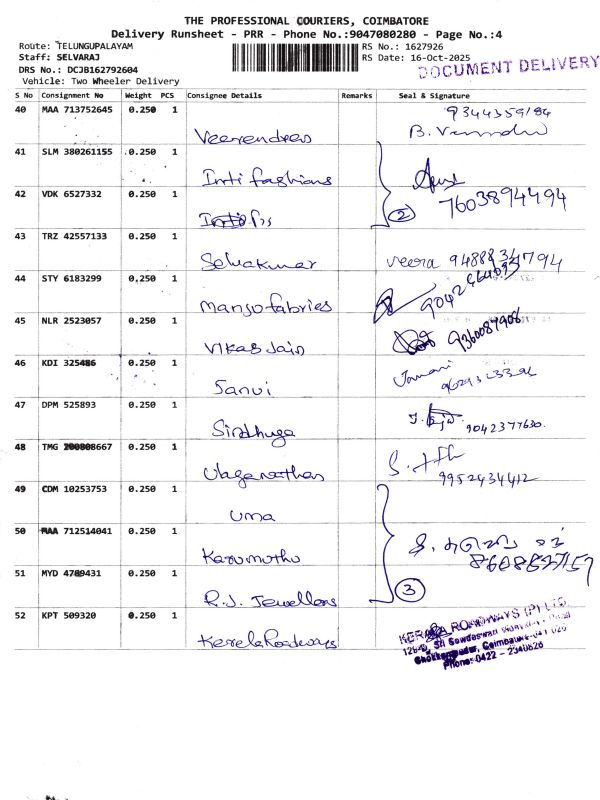 THE PROFESSIONAL COURIERS, COIMBATORE
Delivery Runsheet - PRR - Phone No.:9047080280 - Page No.:4
Route: TELUNGUPALAYAM
RS No.: 1627926
Staff: SELVARAJ
RS Date: 16-Oct-2025
DOCUMENT DELIVERY
DRS No.: DCJB162792604
Vehicle: Two Wheeler Delivery
S No Consignment No Weight PCS Consignee Details Remarks Seal & Signature
40 MAA 713752645 0.250 1
9344359184
Veerendras B.
41 SLM 380261155 0.250 1
Inti fashions
42 VDK 6527332 0.250 1
7603894494
2
43 TRZ 42557133 0.250 1
Selvakumar veera
44 STY 6183299 0.250 1
Manju fabries
45 NLR 2523057 0.250 1
Vikas Jain 9360087908
46 KDI 325486 0.250 1
Sanvi
47 DPM 525893 0.250 1
Sindhuga 9042377630.
48 TMG 200808667 0.250 1
Ulaganathan 9952434412
49 CDM 10253753 0.250 1
Uma
50 MAA 712514041 0.250 1
Karumuthu
51 MYD 4789431 0.250 1
R.J. Jewellers
3
52 KPT 509320 0.250 1
Kerela Roadways
KERALA ROADWAYS (P) LTD.
Phone: 0422 - 2340626